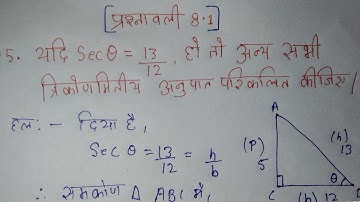 [प्रश्नावली 8.1]
5. यदि Sec θ = 13/12, हो तो अन्य सभी
त्रिकोणमितीय अनुपात परिकलित कीजिए।
हल: - दिया है,
Sec θ = 13/12 = h/b
∴ समकोण Δ ABC में,
A
(P)
5
(h)
13
θ
C
(b) 12